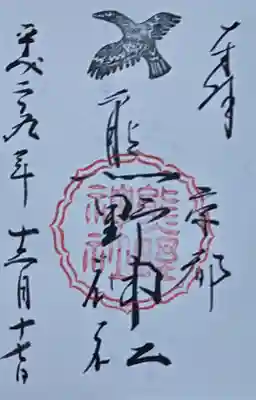 奉拝
京都
熊野神社
熊野
神社
平成二九年
十二月十七日